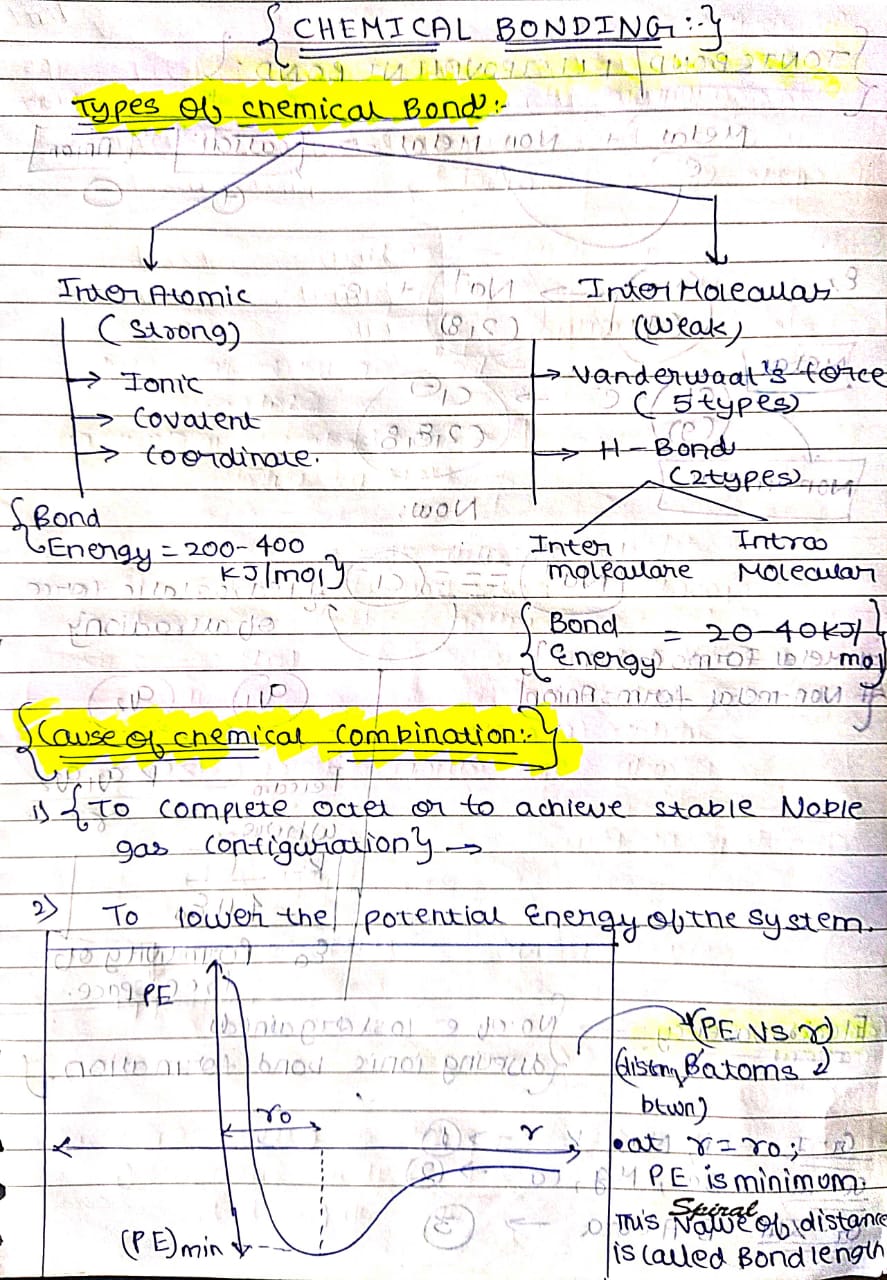 {CHEMICAL BONDING::}
Types Of chemical Bond:-
Inter Atomic
(Strong)
→ Ionic
→ Covalent
→ Coordinate.
{Bond
Energy = 200-400
KJ/mol}
Inter Molecular
(Weak)
→ Vanderwaal's force
(5 types)
→ H-Bond
(2types)
Inter
molecular
Intra
Molecular
{Bond
Energy = 20-40KJ/
mol}
{Cause of chemical Combination:-}
1) {To complete octet or to achieve stable Noble
gas configuration} →
2) To lower the potential Energy of the system.
PE
r₀
r
(PE)min
(PE Vs r)
Batoms
btwn)
• at r = r₀;
P.E is minimum.
Spiral
This Value Of distance
is called Bond length